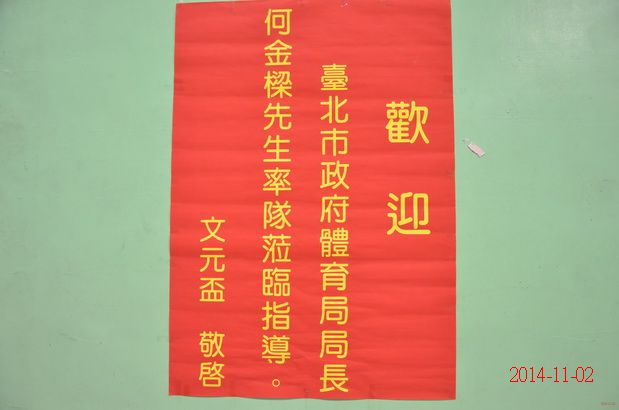 歡迎
臺北市政府體育局局長
何金樑先生率隊蒞臨指導。
文元盃 敬啓
2014-11-02